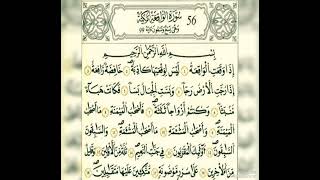 سُورَةُ الوَاقِعَةِ مَكِّيَّة 56
بِسْمِ اللَّهِ الرَّحْمَٰنِ الرَّحِيمِ
إِذَا وَقَعَتِ الْوَاقِعَةُ ١ لَيْسَ لِوَقْعَتِهَا كَاذِبَةٌ ٢ خَافِضَةٌ رَافِعَةٌ ٣
إِذَا رُجَّتِ الْأَرْضُ رَجًّا ٤ وَبُسَّتِ الْجِبَالُ بَسًّا ٥ فَكَانَتْ هَبَاءً
مُنْبَثًّا ٦ وَكُنْتُمْ أَزْوَاجًا ثَلَاثَةً ٧ فَأَصْحَابُ الْمَيْمَنَةِ مَا أَصْحَابُ
الْمَيْمَنَةِ ٨ وَأَصْحَابُ الْمَشْأَمَةِ مَا أَصْحَابُ الْمَشْأَمَةِ ٩ وَالسَّابِقُونَ
السَّابِقُونَ ١٠ أُولَٰئِكَ الْمُقَرَّبُونَ ١١ فِي جَنَّاتِ النَّعِيمِ ١٢ ثُلَّةٌ مِنَ الْأَوَّلِينَ ١٣ وَقَلِيلٌ
مِنَ الْآخِرِينَ ١٤ عَلَىٰ سُرُرٍ مَوْضُونَةٍ ١٥ مُتَّكِئِينَ عَلَيْهَا مُتَقَابِلِينَ ١٦